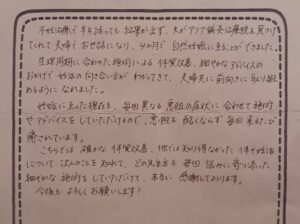 不妊治療で半年経っても結果が出ず、夫がアクア鍼灸治療院を見つけ
てくれて夫婦でお世話になり、4か月で自然妊娠に至ることができました。
生理周期に合わせた施術による体質改善、細やかなアドバイスの
おかげで妊活の向き合い方がわかってきて、夫婦共に前向きに取り組
めるようになれました。
妊娠に至った現在も、毎回異なる悪阻の症状に合わせて施術
やアドバイスをしていただけるので、悪阻も酷くならず毎回来るたび
癒されています。
こちらでは確かな体質改善、他では知り得なかった体と妊活
について沢山のことを知れて、どの先生方も毎回悩みに寄り添った
細やかな施術をしていただけて、本当に感謝しております。
今後もよろしくお願いします!